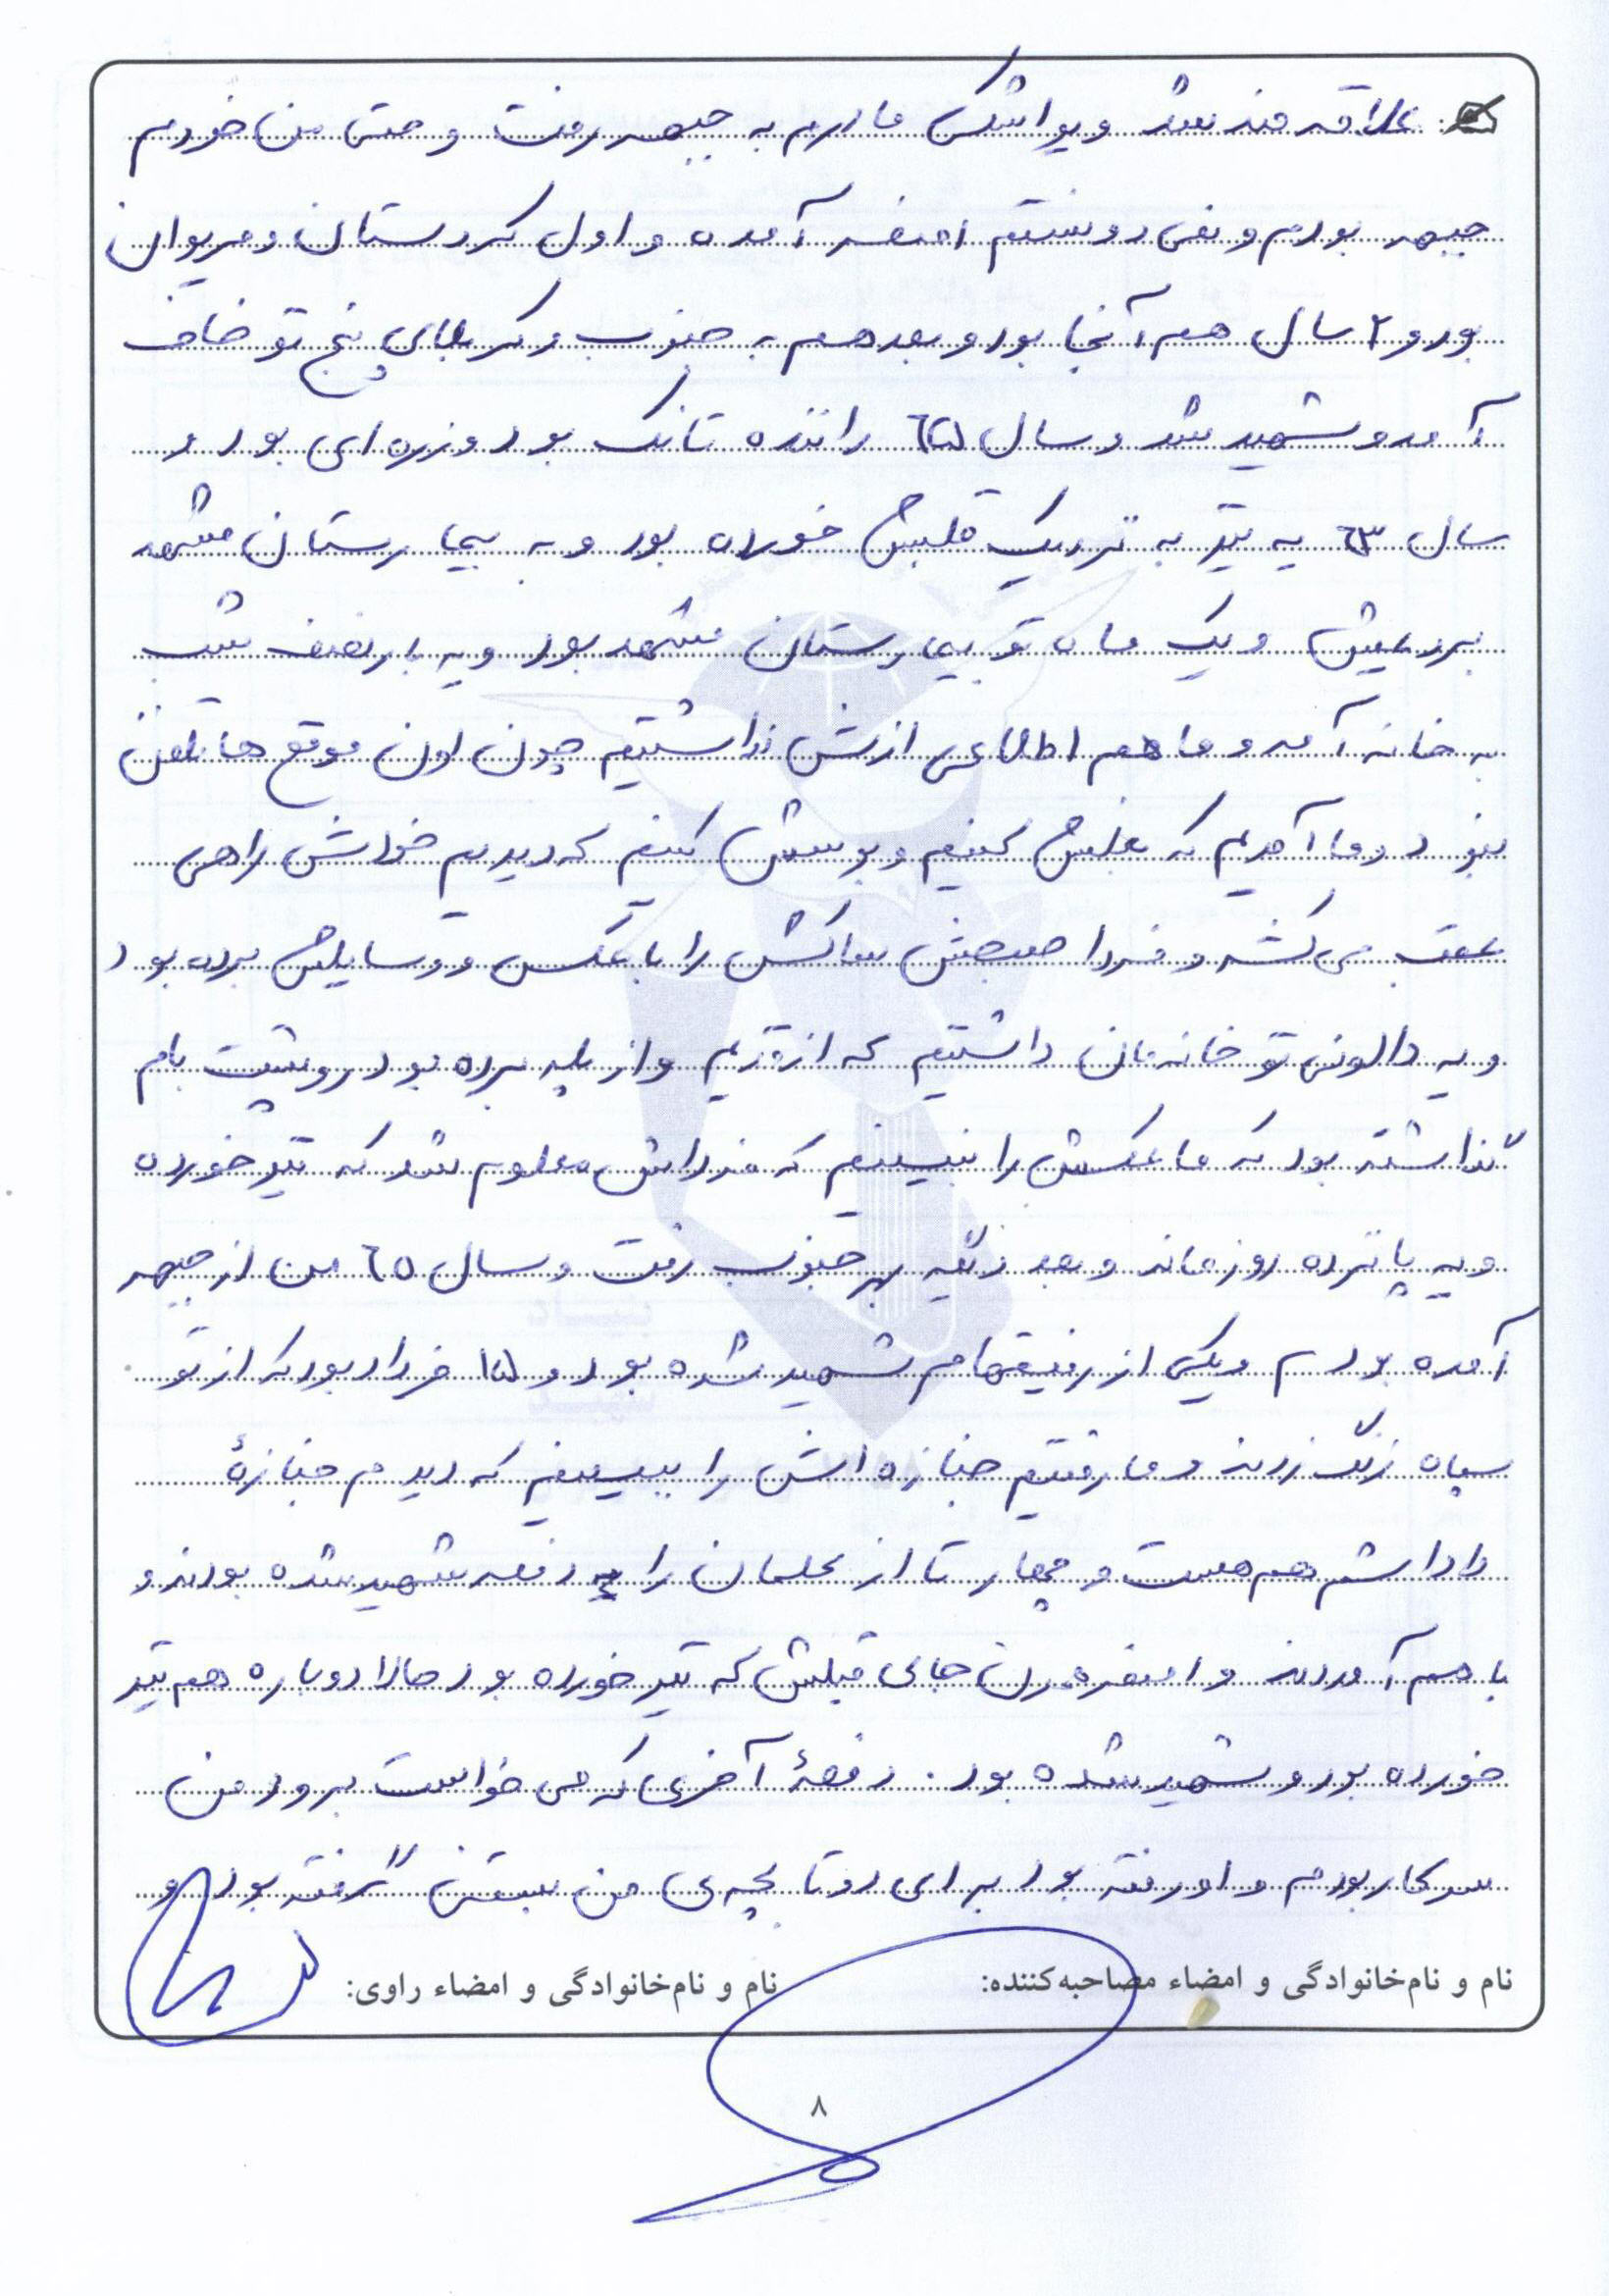 علاقه مند شد و یواشکی مادرم به جبهه رفت و حتی من خودم
جبهه بودم و نمی دونستم اصغر آمده و اول کردستان و مریوان
بود و ۲ سال هم آنجا بود و بعد هم به جنوب و کربلای پنج تو خاف
آمد و شهید شد و سال ٦۵ راننده تانک بود و زرهی ای بود و
سال ٦۳ یه تیر به نزدیک قلبش خورده بود و به بیمارستان مشهد
بردنش و یک ماه تو بیمارستان مشهد بود و یه بار نصف شب
به خانه آمد و ما هم اطلاعی ازش نداشتیم چون اون موقع ها تلفن
نبود و ما آمدیم که بغلش کنیم و بوسش کنیم که دیدیم خودش را هی
عقب می کشه و فردا صبحش ساکش را با عکس و وسایلش برده بود
و یه دالونی تو خانه مان داشتیم که از قدیم و از پله برده بود رو پشت بام
گذاشته بود که ما عکسش را نبینیم که فرداش معلوم شد که تیر خورده
و یه پانزده روز ماند و بعد دیگه به جنوب رفت و سال ٦٥ من از جبهه
آمده بودم و یکی از رفیقهام شهید شده بود و ۱۵ خرداد بود که از تو
سپاه زنگ زدند و ما رفتیم جنازه اش را ببینیم که دیدم جنازهٔ
داداشم هم هست و چهار تا از محلمان را یه دفعه شهید شده بودند و
با هم آوردند و اصغر همون جای قبلش که تیر خورده بود حالا دوباره هم تیر
خورده بود و شهید شده بود. دفعهٔ آخری که می خواست برود من
سر کار بودم و او رفته بود برای دو تا بچه ی من بستنی گرفته بود و
نام و نام‌خانوادگی و امضاء مصاحبه‌کننده: نام و نام‌خانوادگی و امضاء راوی:
۸